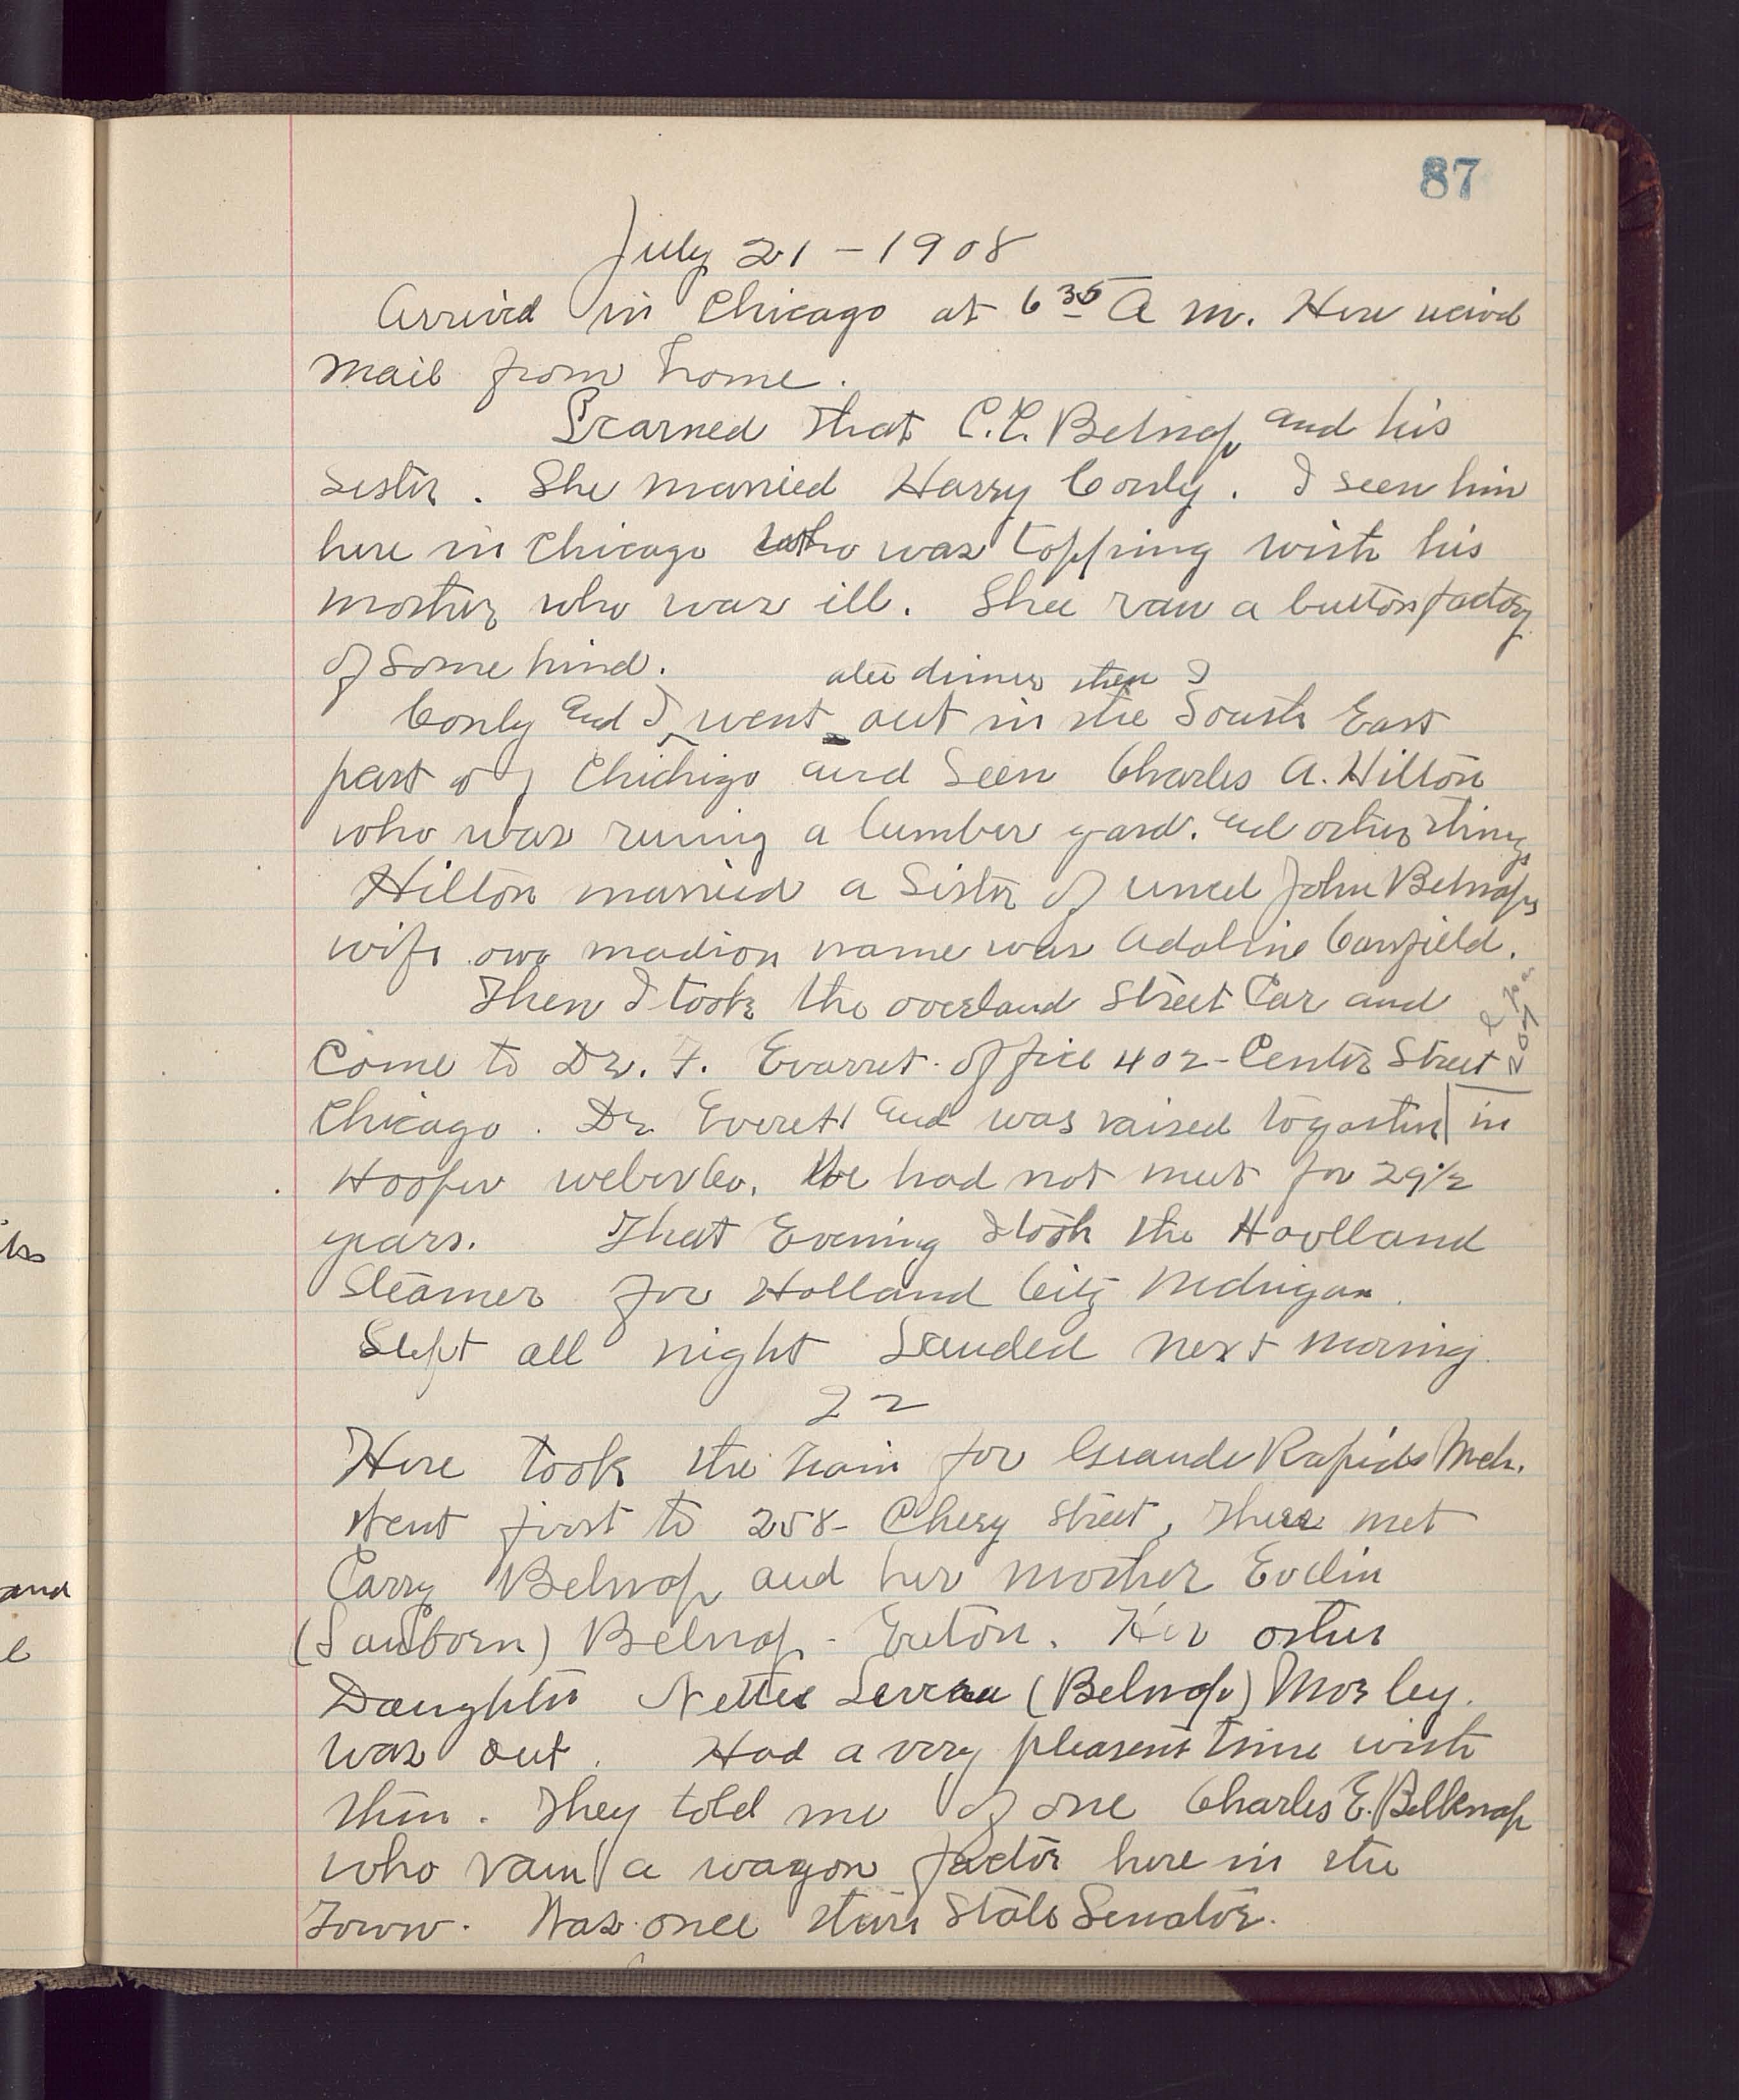 87
July 21 - 1908
Arrived in Chicago at 6 35 A m. Here recived
mail from home.
Learned that C.C. Belnap and his
sister. She married Harry Conly. I seen him
here in Chicago who was topping with his
mother who was ill. Shee ran a button factory
of some kind.
ater dinner then I
Conly and I went out in the South East
part of Chichigo and seen Charles A. Hilton
who was runing a lumber yard. and other things
Hilton married a Sister of uncel John Belnaps
wife madion name was Adaline Canfield.
Then I took the overland street Car and
Come to Dr. F. Evarret office 402 - Center Street
Chicago. Dr Everett and was raised togather in
Hooper weber Co. We had not meet for 29 1/2
years. That Evening I took the Hovlland
Steamer for Holland City Michigan.
Slept all night Landed next morning.
22
Here took the train for Grande Rapids Mich.
Went first to 258 - Chery Street, There met
Carry Belnap and her mother Evelin
(Sanborn) Belnap - Eaton. Her other
Daughter Nettie (Belnap) Mosley.
was out. Had a very pleasent time with
them. They told me of one Charles E. Bellknap
who ran a wagon factor here in the
Town. Was once their State Senator.
and